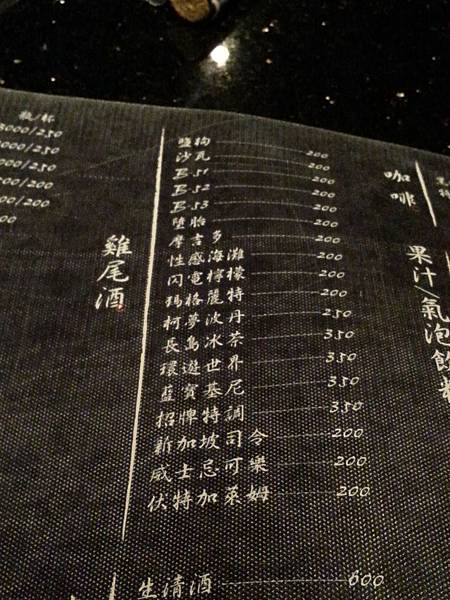 瓶/杯
000/250
000/250
00/250
00/200
00/200
00
雞尾酒
鹽狗 200
沙瓦 200
B-51 200
B-52 200
B-53 200
墮胎 200
摩吉多 200
性感海灘 200
閃電檸檬 200
瑪格麗特 200
柯夢波丹 250
長島冰茶 350
環遊世界 350
藍寶基尼 350
招牌特調 350
新加坡司令 200
威士忌可樂 200
伏特加萊姆 200
生清酒 600
咖啡
果汁/氣泡飲料